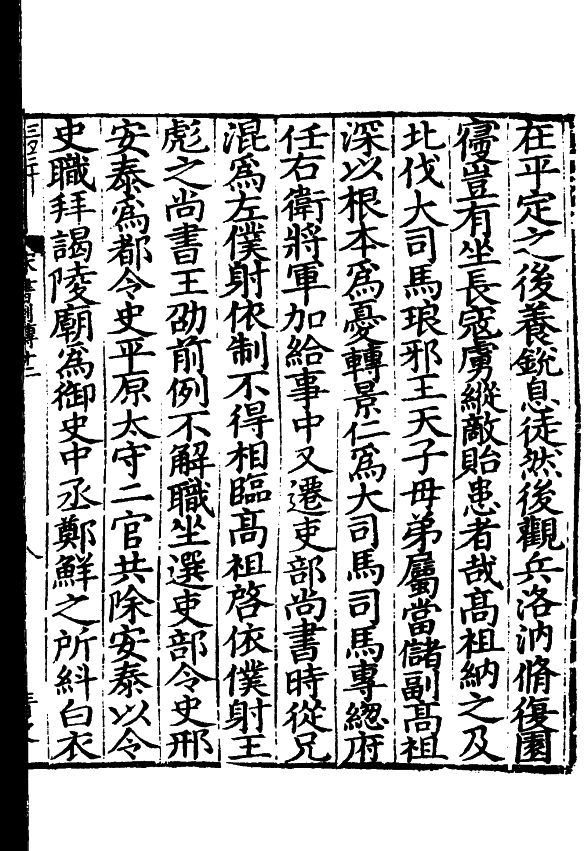 在平定之後養銳息徒然後觀兵洛汭脩復園
寑豈有坐長寇虜縱敵貽患者哉髙祖納之及
北伐大司馬琅邪王天子母弟屬當儲副髙祖
深以根本爲憂轉景仁爲大司馬司馬專緫府
任右衛將軍加給事中又遷吏部尚書時從兄
混爲左僕射依制不得相臨髙祖啓依僕射王
彪之尚書王劭前例不解職坐選吏部令史邢
安泰爲都令史平原太守二官共除安泰以令
史職拜謁陵廟爲御史中丞鄭鮮之所糾白衣
宋書列傳十二